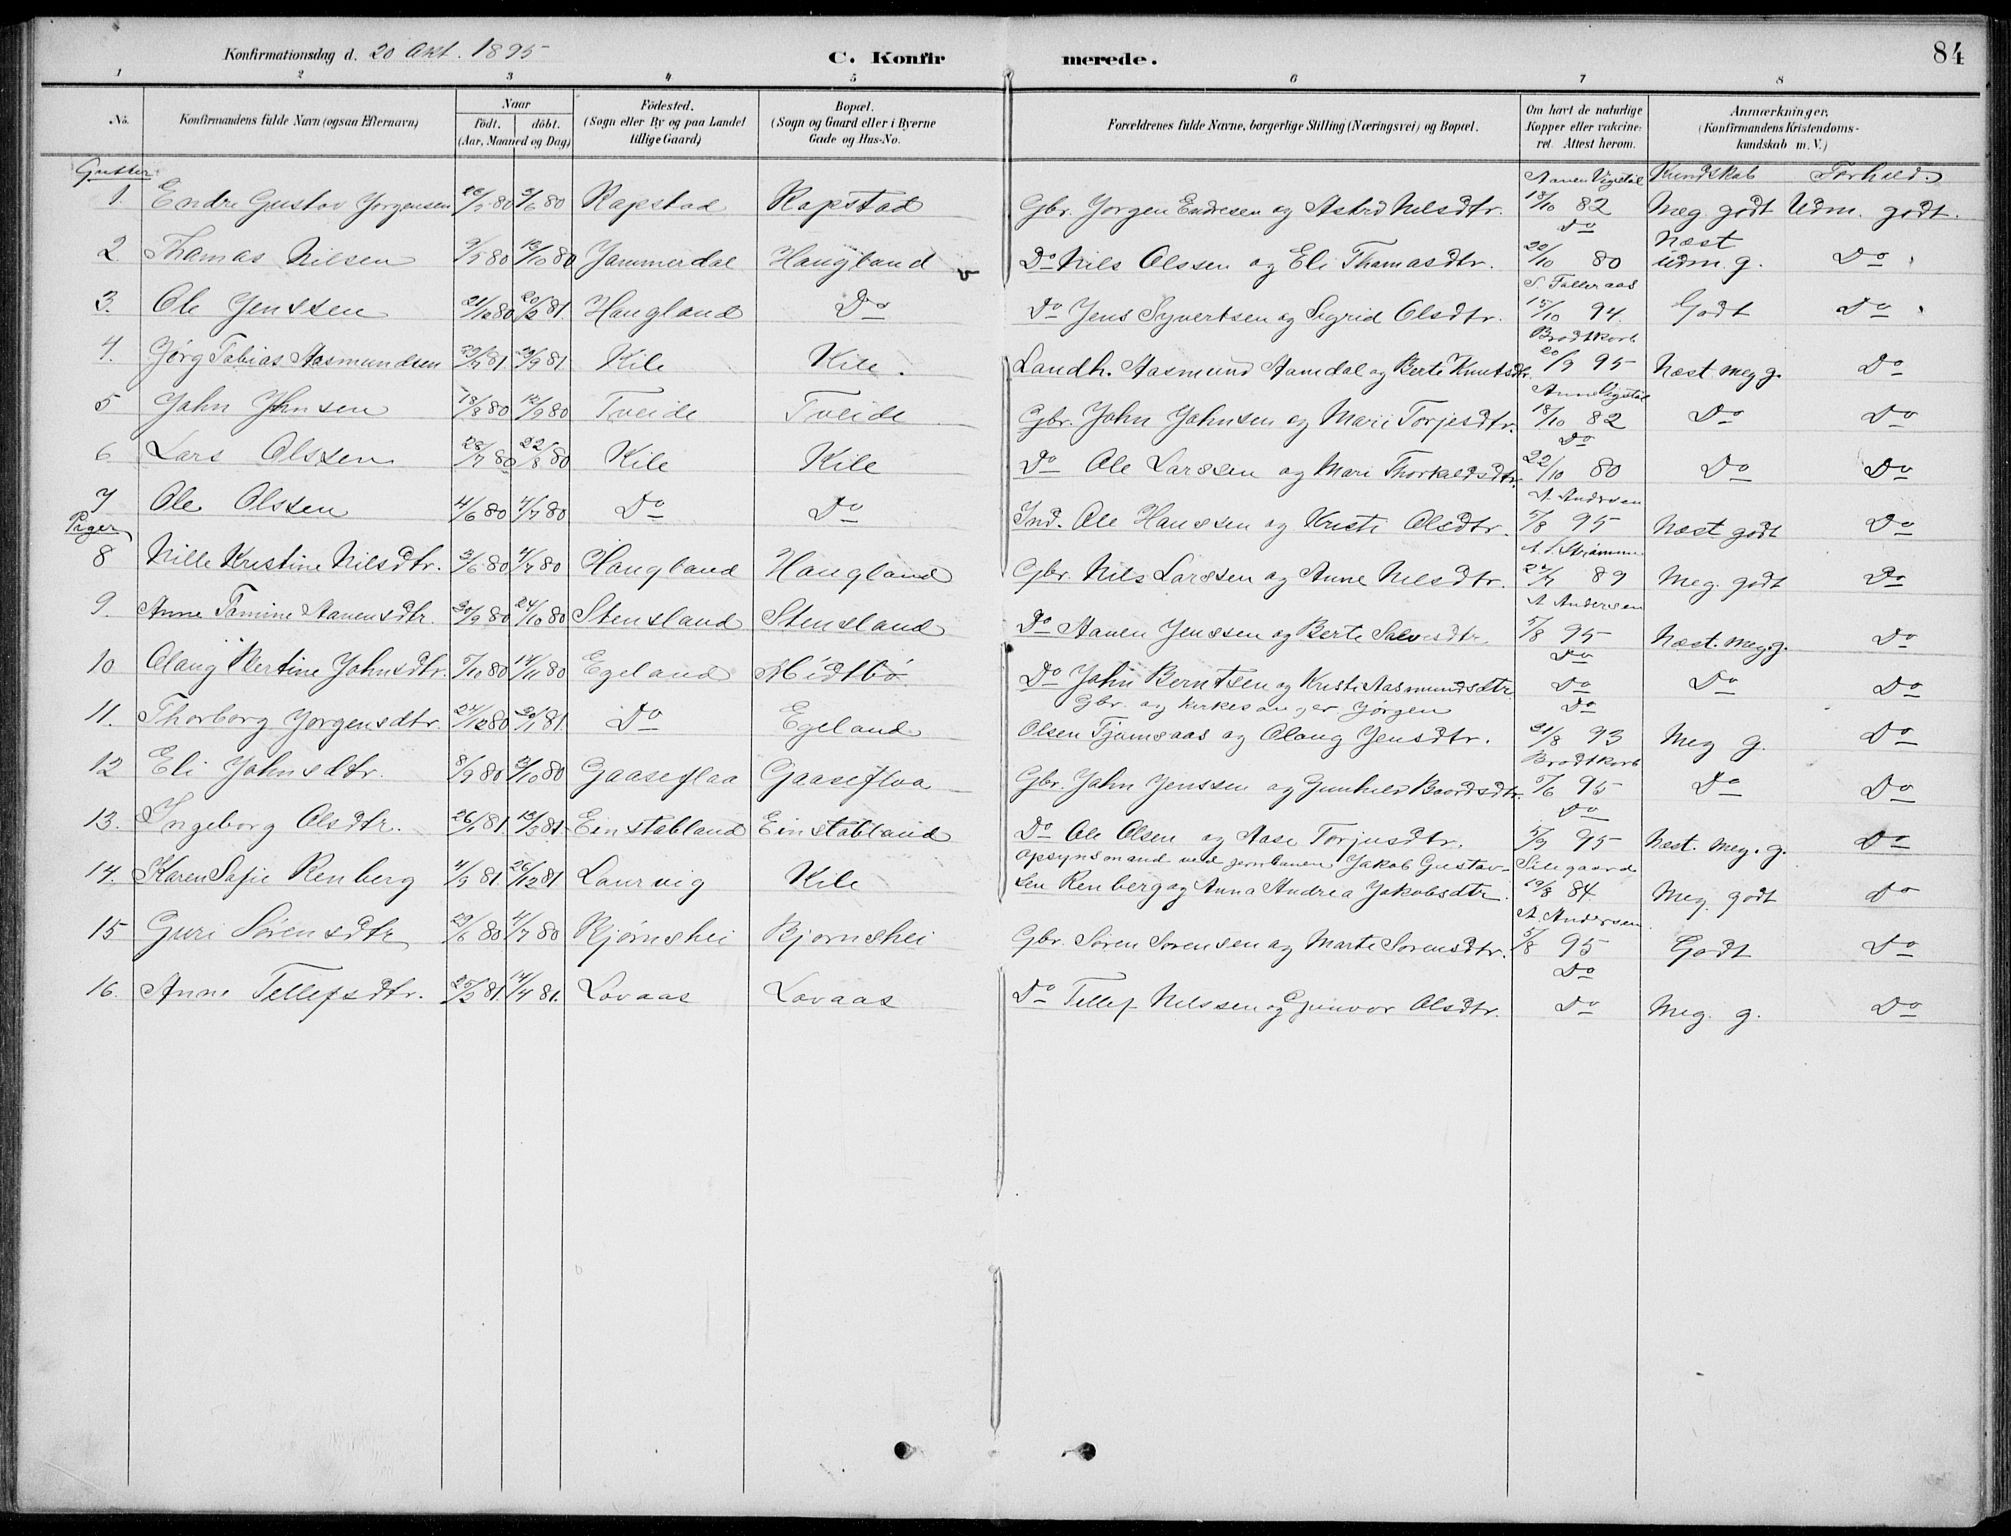 84
Konfirmationsdag d. 20 Okt. 1895
C. Konfirmerede.
1 2 3 4 5 6 7 8
No. Konfirmandens fulde Navn (ogsaa Efternavn) Naar født, døbt. (Aar, Maaned og Dag) Fødested. (Sogn eller By og paa Landet tillige Gaard) Bopæl. (Sogn og Gaard eller i Byerne Gade og Hus-No. Forældrenes fulde Navne, borgerlige Stilling (Næringsvei) og Bopæl. Om havt de naturlige Kopper eller vakcineret. Attest herom. Anmærkninger. (Konfirmandens Kristendomskundskab m. V.)
Gutter Kundskab Forhold
1. Endre Gustav Jørgensen 5/6 80 Rapstad Rapstad Gbr. Jørgen Endresen og Astrid Nilsdtr. Aanen Vigstøl 18/10 82 Meg. godt Udm. godt.
2 Thomas Nilsen 9/5 80 10/10 80 Jammerdal Haugland Do Nils Olssen og Eli Thomasdtr. Do 22/10 80 Næst udm. g. Do
3. Ole Jenssen 21/12 80 20/2 81. Haugland Do Do Jens Syvertsen og Sigrid Olsdtr. S. Falleraas 15/10 94. Godt Do
4. Jørg Tobias Aasmundsen 81. 81. Kile Kile. Landh. Aasmund Aamdal og Berte Knutsdtr. Brodtkorb 20/9 95 Næst meg g. Do
5 John Jhnsen 18/8 80 12/9 80 Tveide Tveide Gbr. John Johnsen og Mari Torjesdtr. Aanen Vigstøl 18/10 82 Do Do
6 Lars Olssen 28/7 80 22/8 80 Kile Kile Do Ole Larssen og Mari Thorkeldsdtr. Do 22/10 80 Do Do
7 Ole Olssen 4/6 80 4/7 80 Do Do Ind. Ole Hanssen og Kristi Olsdtr. A. Andersen 5/8 95 Næst godt Do
Piger
8 Nille Kristine Nilsdtr. 3/6 80 4/7 80 Haugland Haugland Gbr. Nils Larssen og Anne Nilsdtr. 24/7 89 Meg. godt Do
9. Anne Tomine Aanensdtr. 30/9 80 24/10 80 Stensland Stensland Do Aanen Jenssen og Berte Salvesdtr. A Andersen 5/8 95 Næst. meg. g. Do
10 Olaug Bertine Johnsdtr. 5/10 80 14/11 80 Egeland Midtbø Do John Berntsen og Kristi Aasmundsdtr. Do Do Do Do
11. Thorborg Jørgensdtr. 24/12 80 30/1 81. Do Egeland Gbr. og kirkesanger Jørgen
Olsen Tjomsaas og Olaug Jensdtr. Do 21/8 93 Meg g. Do
12 Eli Johnsdtr. 8/9 80 3/10 80 Gaaseflaa Gaaseflaa Gbr. John Jenssen og Gunhild Baardsdtr. Brodtkorb 5/6 95 Do Do
13. Ingeborg Olsdtr. 26/1 81. 13/3 81. Einstabland Einstabland Do Ole Olsen og Aase Torjusdtr. Do 5/9 95 Næst. meg. g. Do
14. Karen Sofie Renberg 4/9 81. 26/12 81 Laurvig Kile Opsynsmand ved jernbanen Jakob Gustav-
sen Renberg og Anna Andrea Jakobsdtr. 19/8 84. Meg. godt Do
15 Guri Sørensdtr 29/6 80 4/7 80 Bjørnshei Bjørnshei Gbr. Søren Sørensen og Marte Sørensdtr. A. Andersen 5/8 95 Godt Do
16. Anne Tellefsdtr. 25/2 81. 14/4 81. Lovaas Lovaas Do Tellef Nilssen og Gunvor Olsdtr. Do Do Meg. g. Do